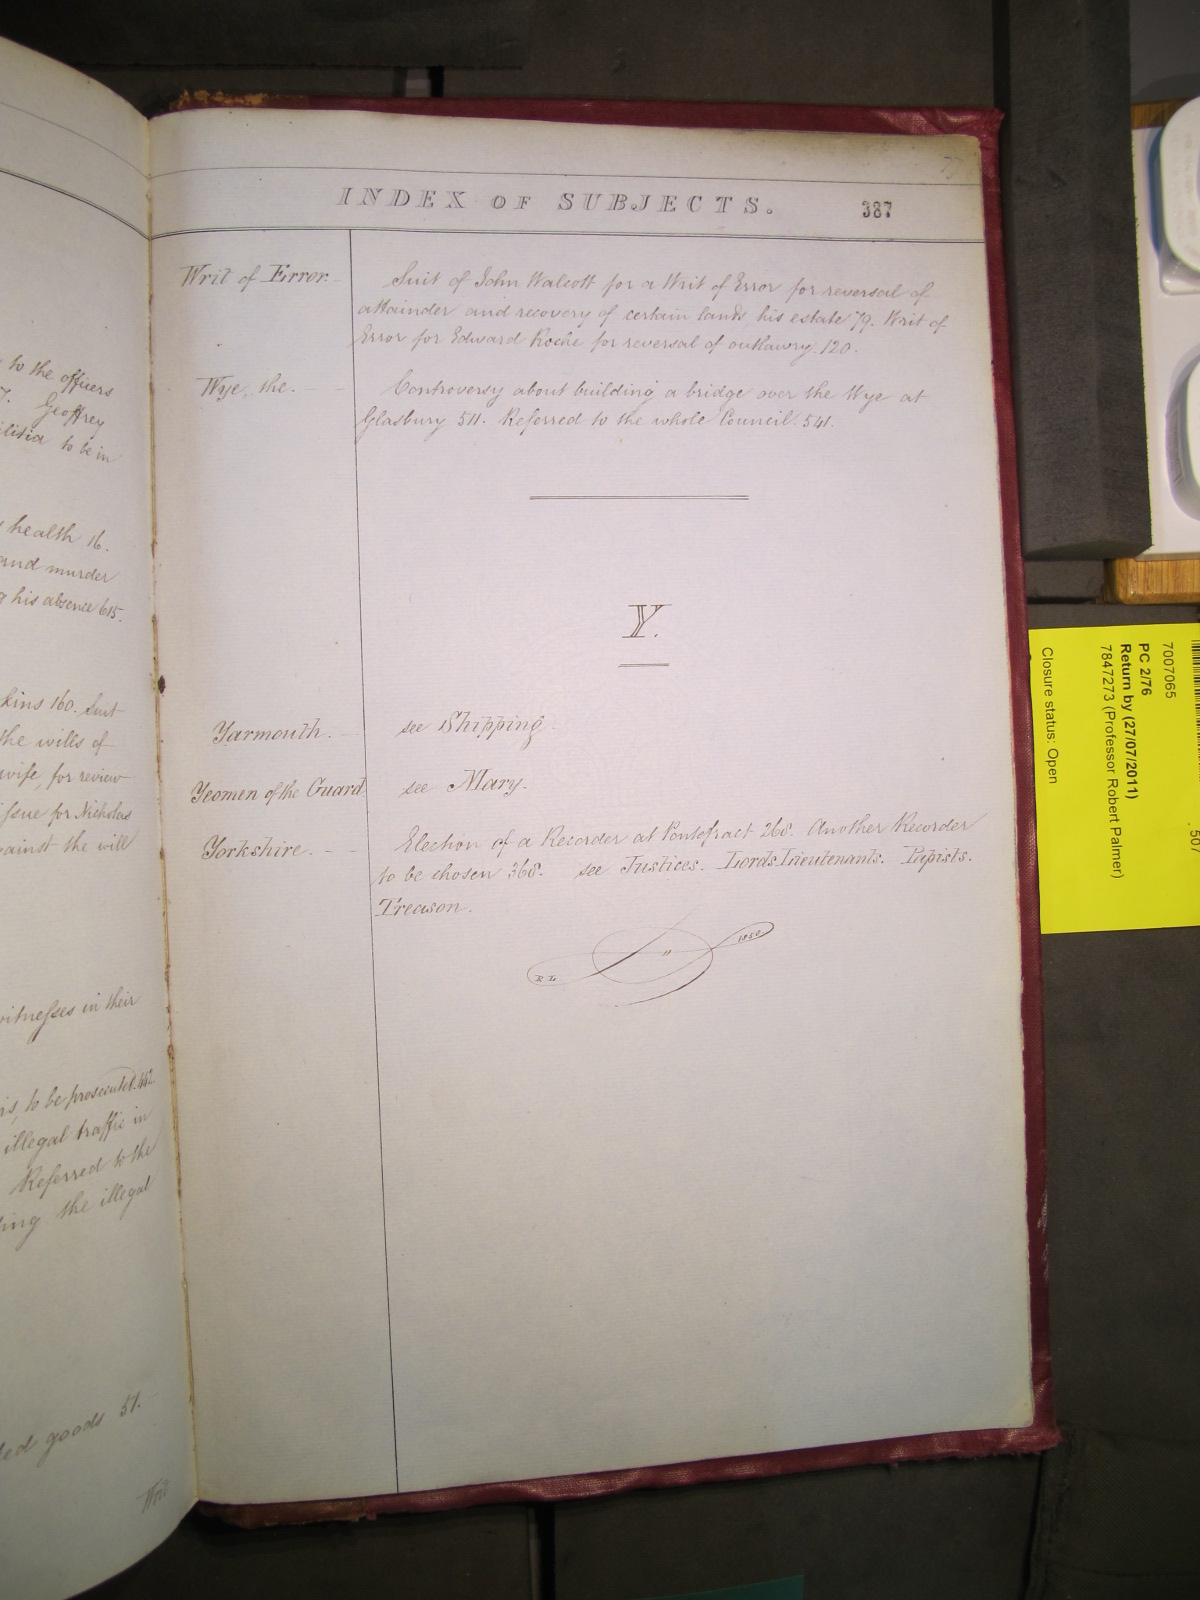 to the officers
7. Geoffrey
to be in
health 16.
and murder
his absence 615.
kins 160. Suit
the wills of
wife, for review
issue for Nicholas
against the will
witnesses in their
to be prosecuted. 442
illegal traffic in
Referred to the
the illegal
goods 51.
Writ
INDEX OF SUBJECTS.
387
Writ of Error.
Suit of John Walcott for a Writ of Error for reversal of
attainder and recovery of certain lands his estate 79. Writ of
Error for Edward Roche for reversal of outlawry. 120.
Wye, the.
Controversy about building a bridge over the Wye at
Glasbury 511. Referred to the whole Council. 541.
Y.
Yarmouth.
see Shipping.
Yeomen of the Guard
see Mary.
Yorkshire.
Election of a Recorder at Pontefract 268. Another Recorder
to be chosen 368. see Justices. Lords Lieutenants. Papists.
Treason.
R L 1850
7007065
PC 2/76
Return by (27/07/2011)
7847273 (Professor Robert Palmer)
Closure status: Open
507